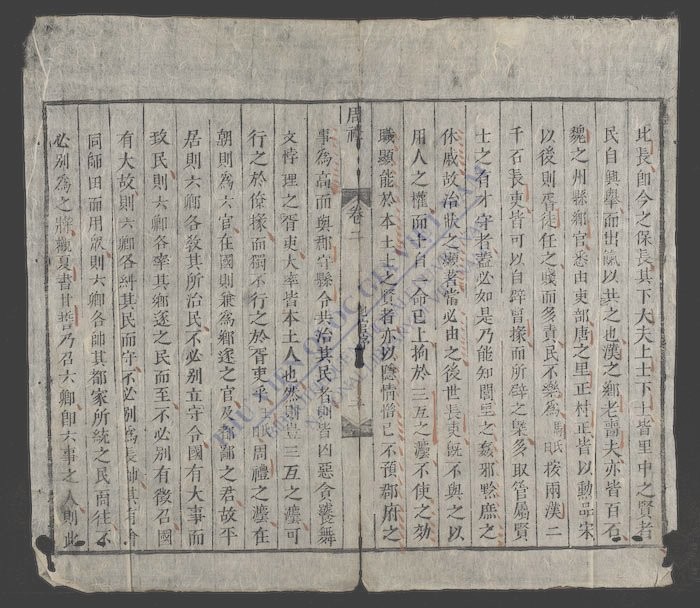 此長即今之保長其下大夫上士下士皆里中之賢者
民自興舉而出賦以共之也漢之鄉老嗇夫亦皆百石
魏之州縣鄉官悉由吏部唐之里正村正皆以勳品宋
以後則胥徒任之賤而多責民不樂為 按兩漢二
千石長吏皆可以自辟曹掾而所辟之 多取管屬賢
士之有才守者蓋必如是乃能知閭里之姦邪黔庶之
休戚故治狀之 者當必由之後世長吏既不與之以
用人之權而士自一命已上拘於三互之灋不使之効
職顯能於本土士之賢者亦以 情 己不預郡府之
事為高而與郡守縣令共治其民者則皆凶惡貪饕舞
文悖理之胥吏大率皆本土人也然則豈三互之灋可
行之於僚掾而獨不行之於胥吏乎 周禮之灋在
朝則為六官在國則兼為鄉遂之官及都鄙之君故平
居則六鄉各敎其所治民不必別立守令國有大事而
致民則六鄉各率其鄉遂之民而至不必別有徵召國
有大故則六鄉各 其民而守不必別為長帥其有會
同師田而用眾則六鄉各帥其都家所統之民而往不
必別為之將觀夏書甘誓乃召六卿即六事之人則此
周禮
卷二